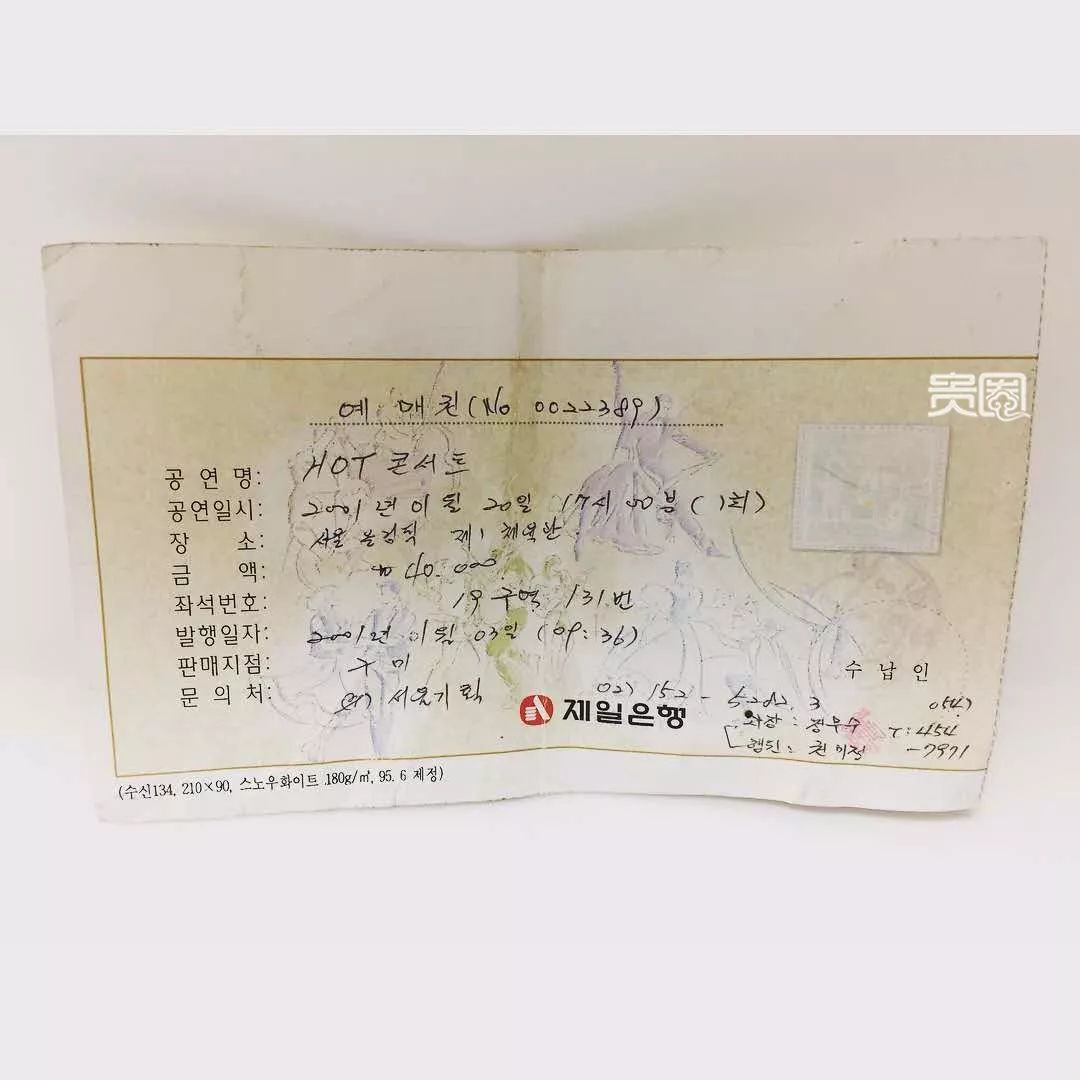 贵圈
예 매 권 (No 0022389)
공 연 명: HOT 콘서트
공연일시: 2001년 01월 20일 17시 00분 ( 1회)
장 소: 서울 제1 체육관
금 액: ₩40.000
좌석번호: 19구역 131번
발행일자: 2001년 01월 03일 (09:36)
판매지점: 구 미
수 납 인
문 의 처: 서울기획 02)
제일은행
054)
T: 454
-7971
(수신134, 210×90, 스노우화이트 180g/㎡, 95. 6 제정)